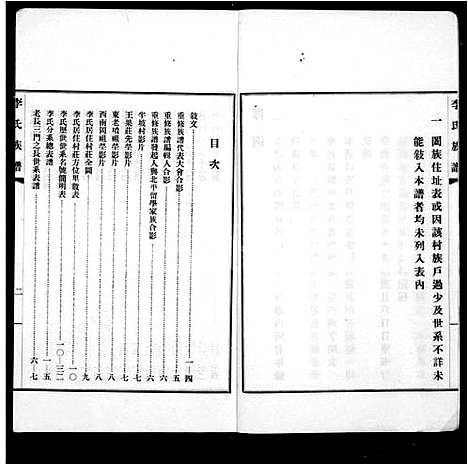 一 闔族住址表或因該村族戶過少及世系不詳未
能敍入本譜者均未列入表內
目次
敍文 一—四
重修族譜代表大會合影 五
重修族譜編輯人合影 六
重修族譜發起人與北平留學家族合影 六
半坡村影片 七
王果莊先塋影片 七
東老墳祖塋影片 八
西南園祖塋影片 八
李氏居住村莊全圖 九
李氏居住村莊方位里數表 一〇
李氏歷世世系名號簡明表 一〇—三二
李氏分系總表譜 一—五
老長三門之長世系表譜 六—七
李氏族譜
二